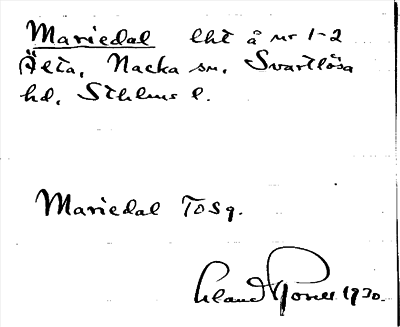 Mariedal lht å nr 1-2
Älta, Nacka sn. Svartlösa
hd, Sthlms l.
Mariedal TOSg.
Erland Rosell 1930.